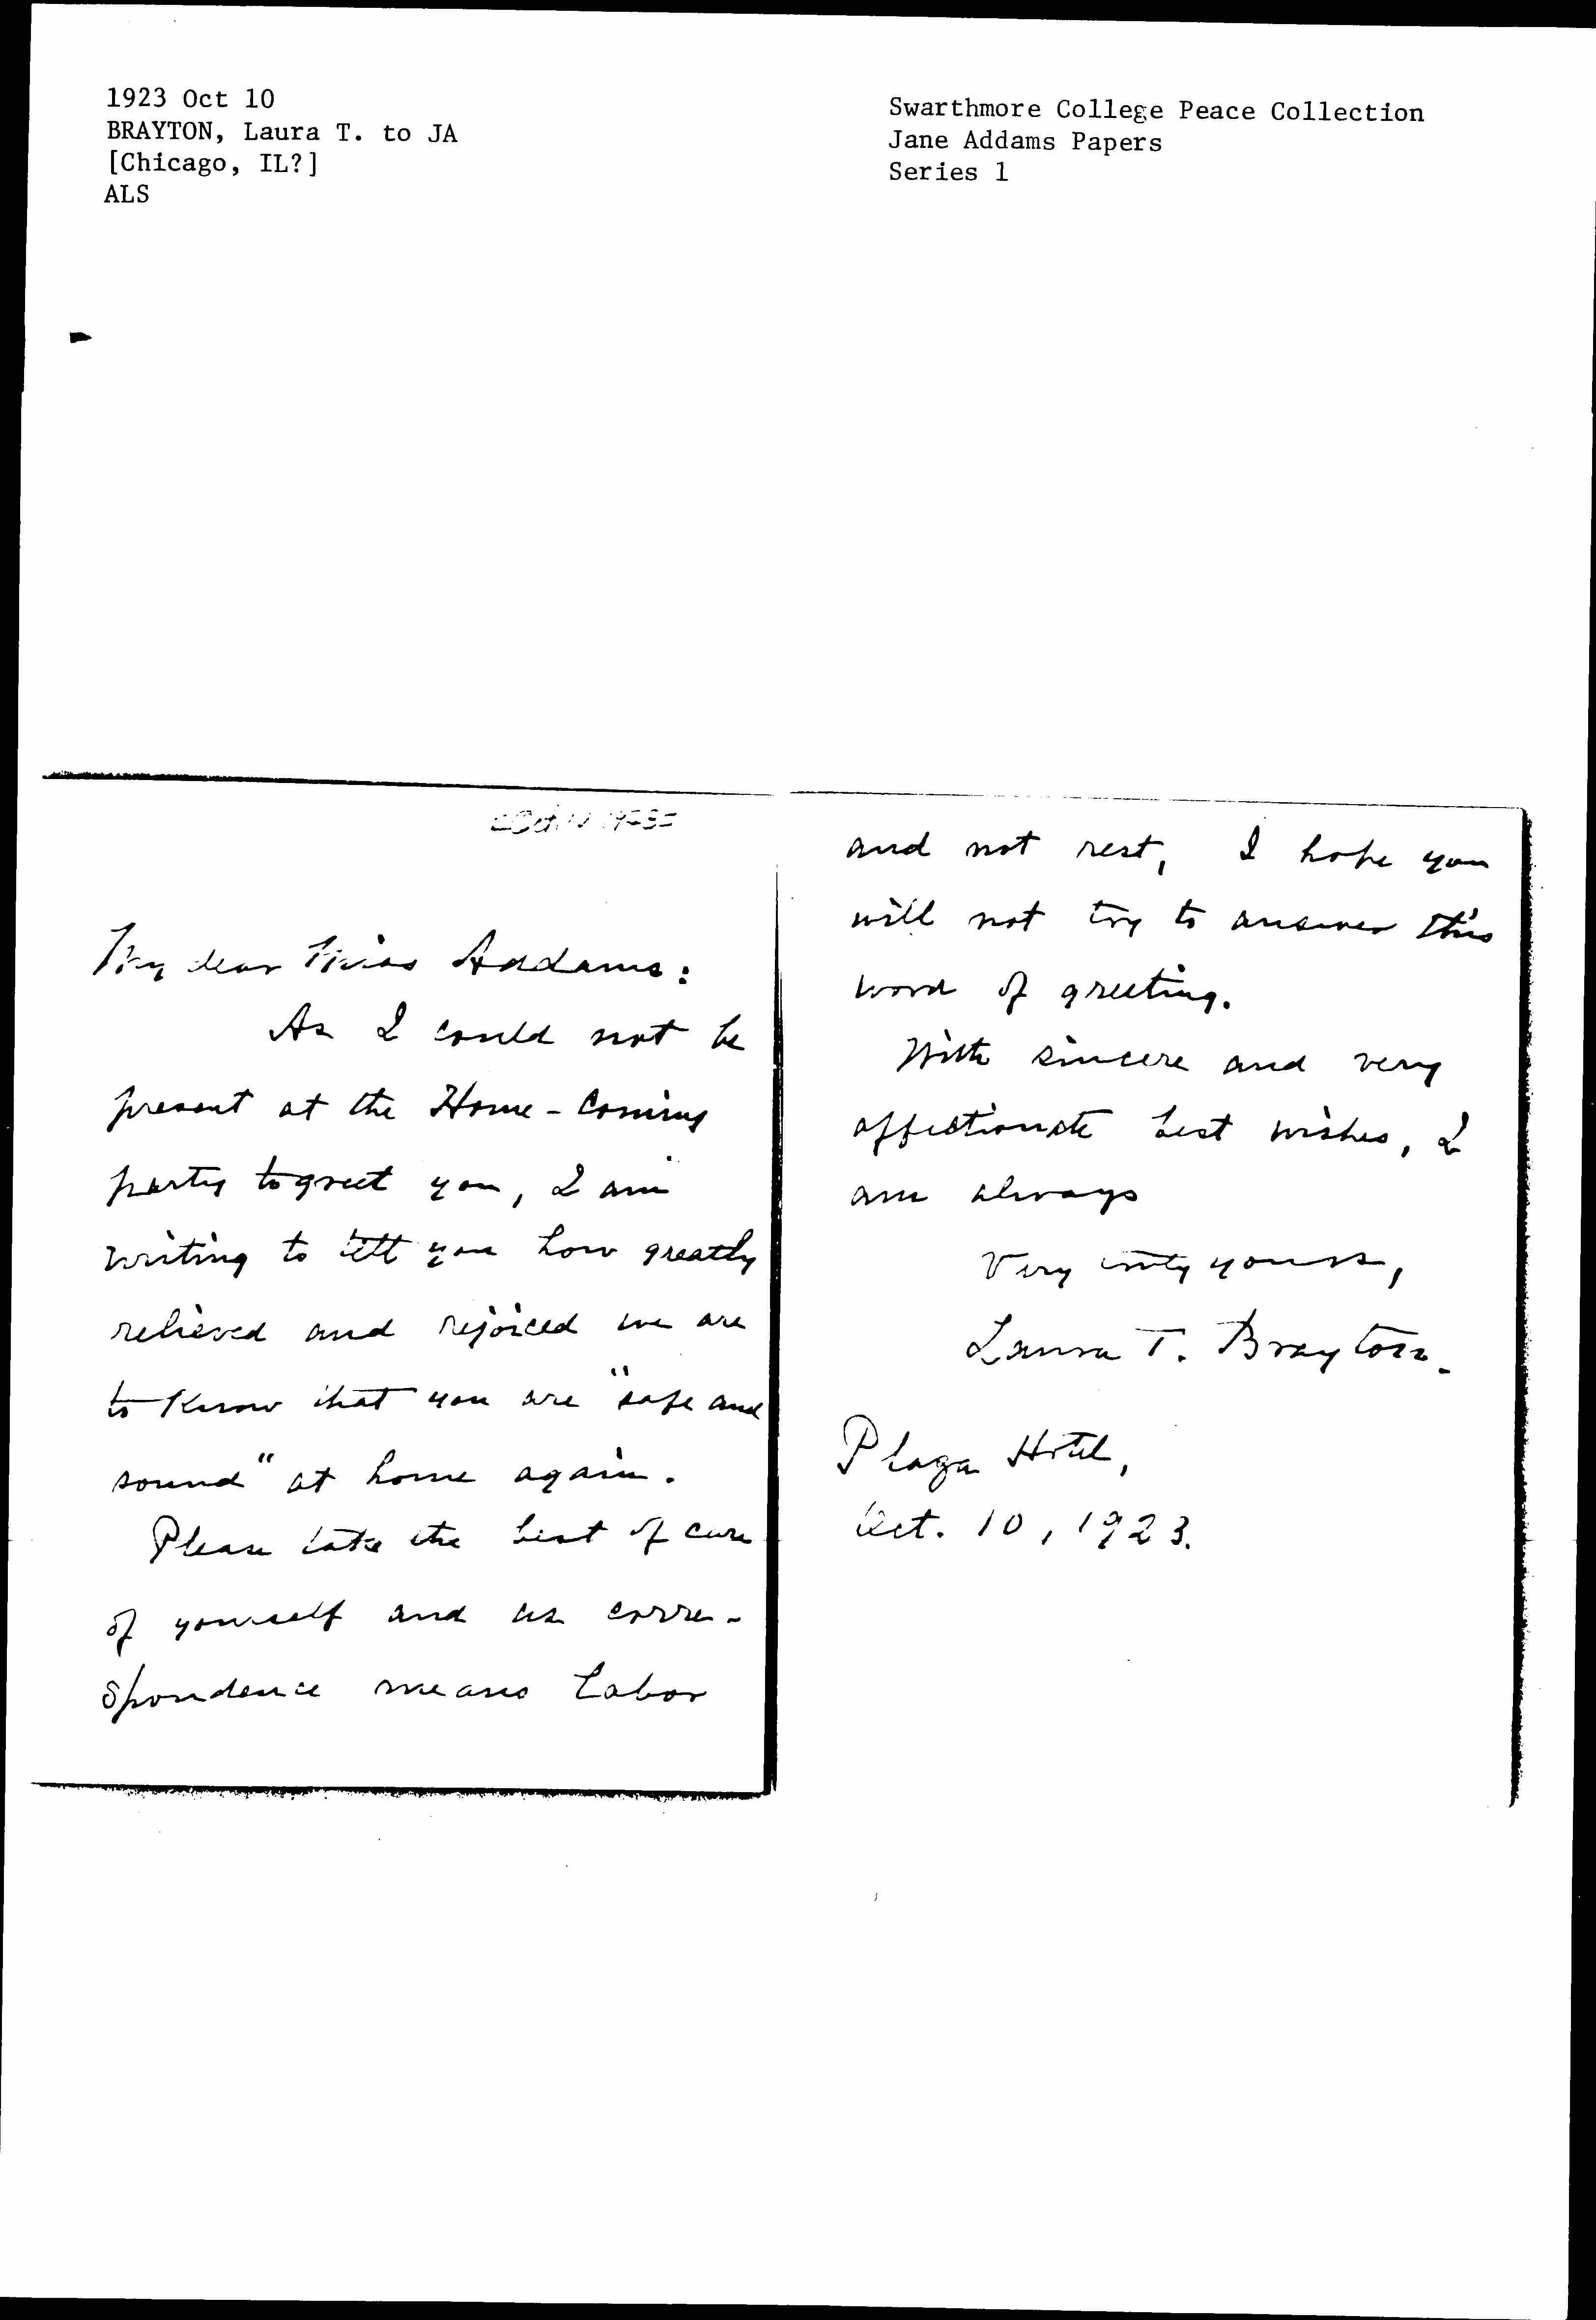 1923 Oct 10
BRAYTON, Laura T. to JA
[Chicago, IL?]
ALS
Swarthmore College Peace Collection
Jane Addams Papers
Series 1
My dear Miss Addams:
As I could not be
present at the Home-Coming
party to greet you, I am
writing to tell you how greatly
relieved and rejoiced we are
to know that you are "safe and
sound" at home again.
Please take the best of care
of yourself and as corre-
spondence means labor
and not rest, I hope you
will not try to answer this
word of greeting.
With sincere and very
affectionate best wishes, I
am always
Very truly yours,
Laura T. Brayton.
Plaza Hotel,
Oct. 10, 1923.